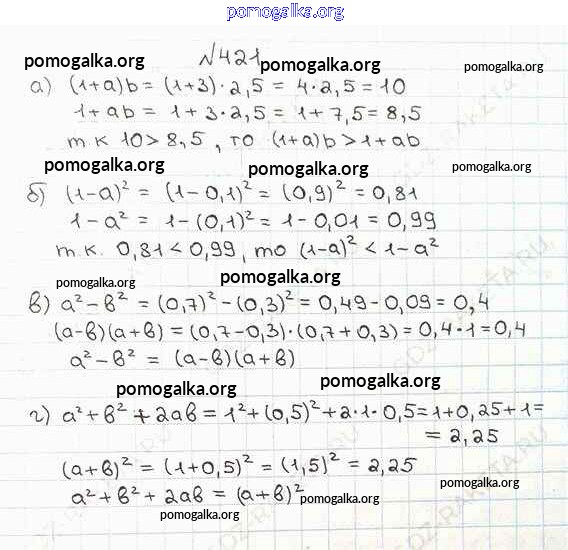 pomogalka.org
№421
pomogalka.org pomogalka.org pomogalka.org
а) (1+a)b = (1+3)·2,5 = 4·2,5 = 10
1+ab = 1+3·2,5 = 1+7,5 = 8,5
т.к 10>8,5, то (1+a)b>1+ab
pomogalka.org pomogalka.org pomogalka.org
б) (1-a)² = (1-0,1)² = (0,9)² = 0,81
1-a² = 1-(0,1)² = 1-0,01 = 0,99
т.к. 0,81<0,99, то (1-a)² < 1-a²
pomogalka.org pomogalka.org pomogalka.org
в) a²-в² = (0,7)²-(0,3)² = 0,49-0,09 = 0,4
(a-в)(a+в) = (0,7-0,3)·(0,7+0,3) = 0,4·1 = 0,4
a²-в² = (a-в)(a+в)
pomogalka.org pomogalka.org
г) a²+в²+2aв = 1²+(0,5)²+2·1·0,5 = 1+0,25+1 =
= 2,25
(a+в)² = (1+0,5)² = (1,5)² = 2,25
pomogalka.org
a²+в²+2aв = (a+в)²
pomogalka.org
pomogalka.org pomogalka.org
GDZ-RAKETA.RU